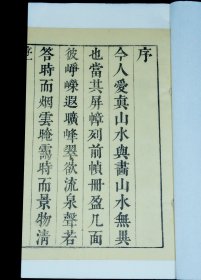 序
今人愛真山水與畫山水無異
也當其屏幛列前幀冊盈几面
彼崢嶸遐曠峰翠欲流泉聲若
答時而烟雲晻靄時而景物清